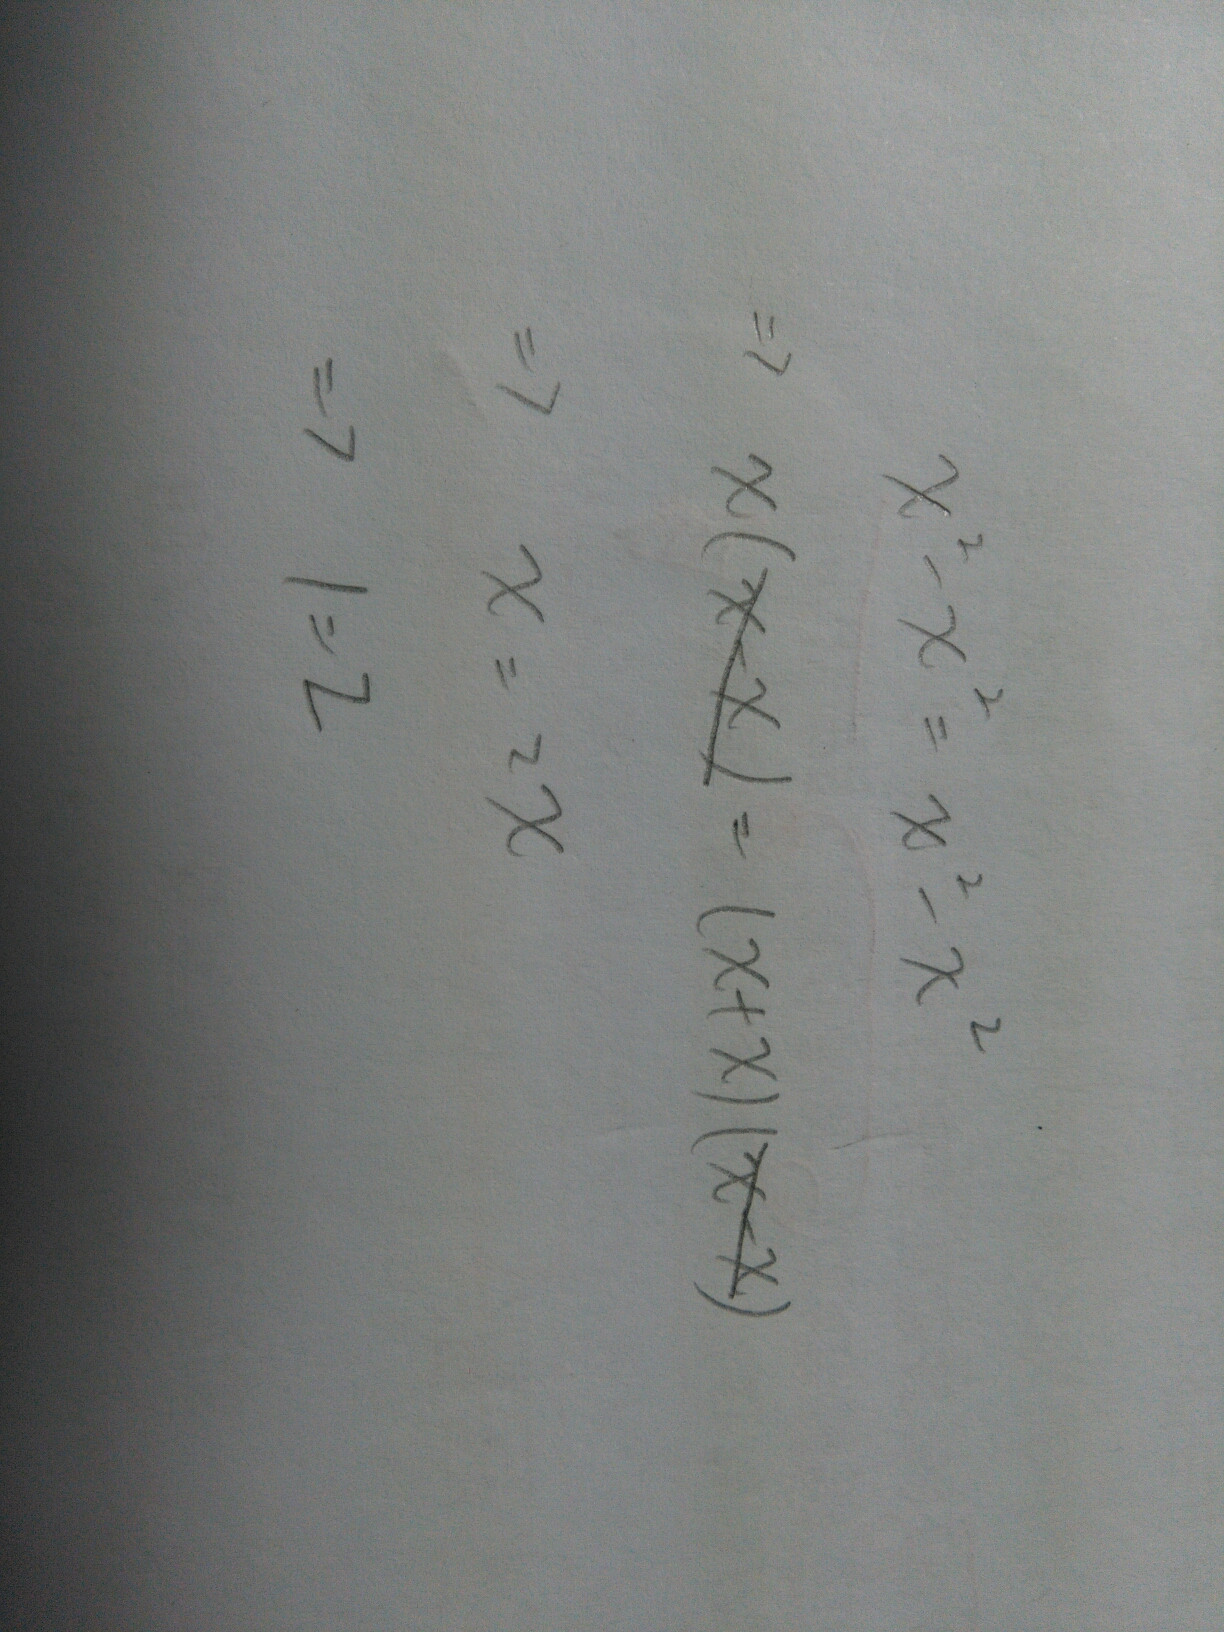 x² - x² = x² - x²
=> x(x-x) = (x+x)(x-x)
=> x = 2x
=> 1 = 2